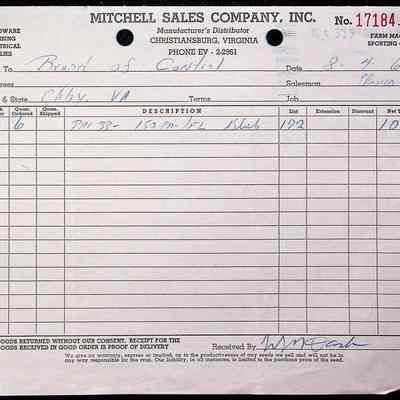 MITCHELL SALES COMPANY, INC. No. 17184
Manufacturer's Distributor
CHRISTIANSBURG, VIRGINIA
PHONE EV - 2-2961
FARM MA
SPORTING
To Board of Control Date 8-4-6
Salesman
& State Cbbg, VA Terms Job
Quan. Ordered Quan. Shipped DESCRIPTION List Extension Discount Net
6 PAR 38- 150 172 10
OODS RETURNED WITHOUT OUR CONSENT. RECEIPT FOR THE
OODS RECEIVED IN GOOD ORDER IS PROOF OF DELIVERY Received By
We give no warranty, express or implied, as to the productiveness of any seeds we sell and will not be in
any way responsible for the crop. Our liability, in all instances, is limited to the purchase price of the seed.